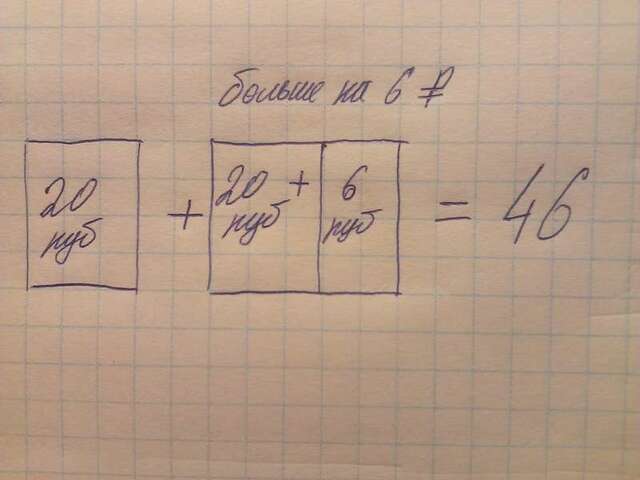 больше на 6 ₽
20 руб + 20 руб + 6 руб = 46